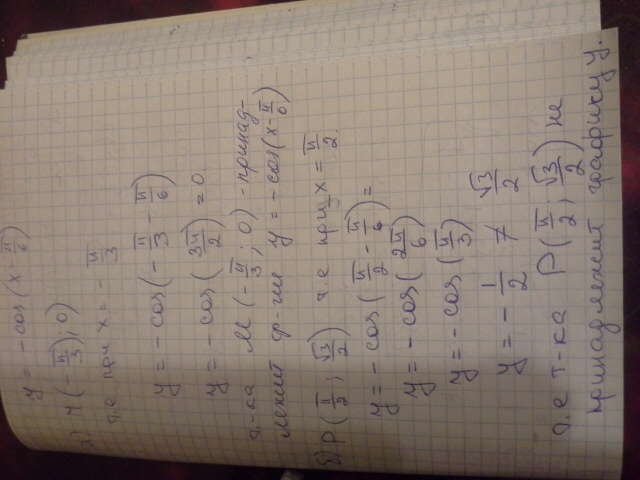 y = -cos(x - π/6)
а) M(-π/3; 0)
т.е при x = -π/3
y = -cos(-π/3 - π/6)
y = -cos(3π/2) = 0.
т-ка M(-π/3; 0) - принад-
лежит ф-ции y = -cos(x - π/6)
б) P(π/2; √3/2) т.е при x = π/2.
y = -cos(π/2 - π/6) =
y = -cos(2π/6)
y = -cos(π/3)
y = -1/2 ≠ √3/2
т.е т-ка P(π/2; √3/2) не
принадлежит графику y.